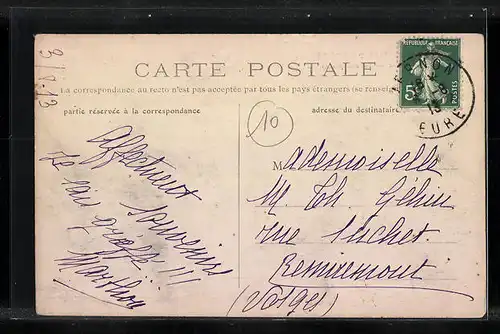 3/8-13
CARTE POSTALE
La correspondance au recto n'est pas acceptée par tous les pays étrangers (se renseign
partie réservée à la correspondance
adresse du destinataire
RÉPUBLIQUE FRANÇAISE
5c
POSTES
VERNON
13
EURE
10
Affectueux souvenirs
Je suis
!!!
M ademoiselle
M. Th. Gehin
rue Suchet.
Remiremont
(Vosges)